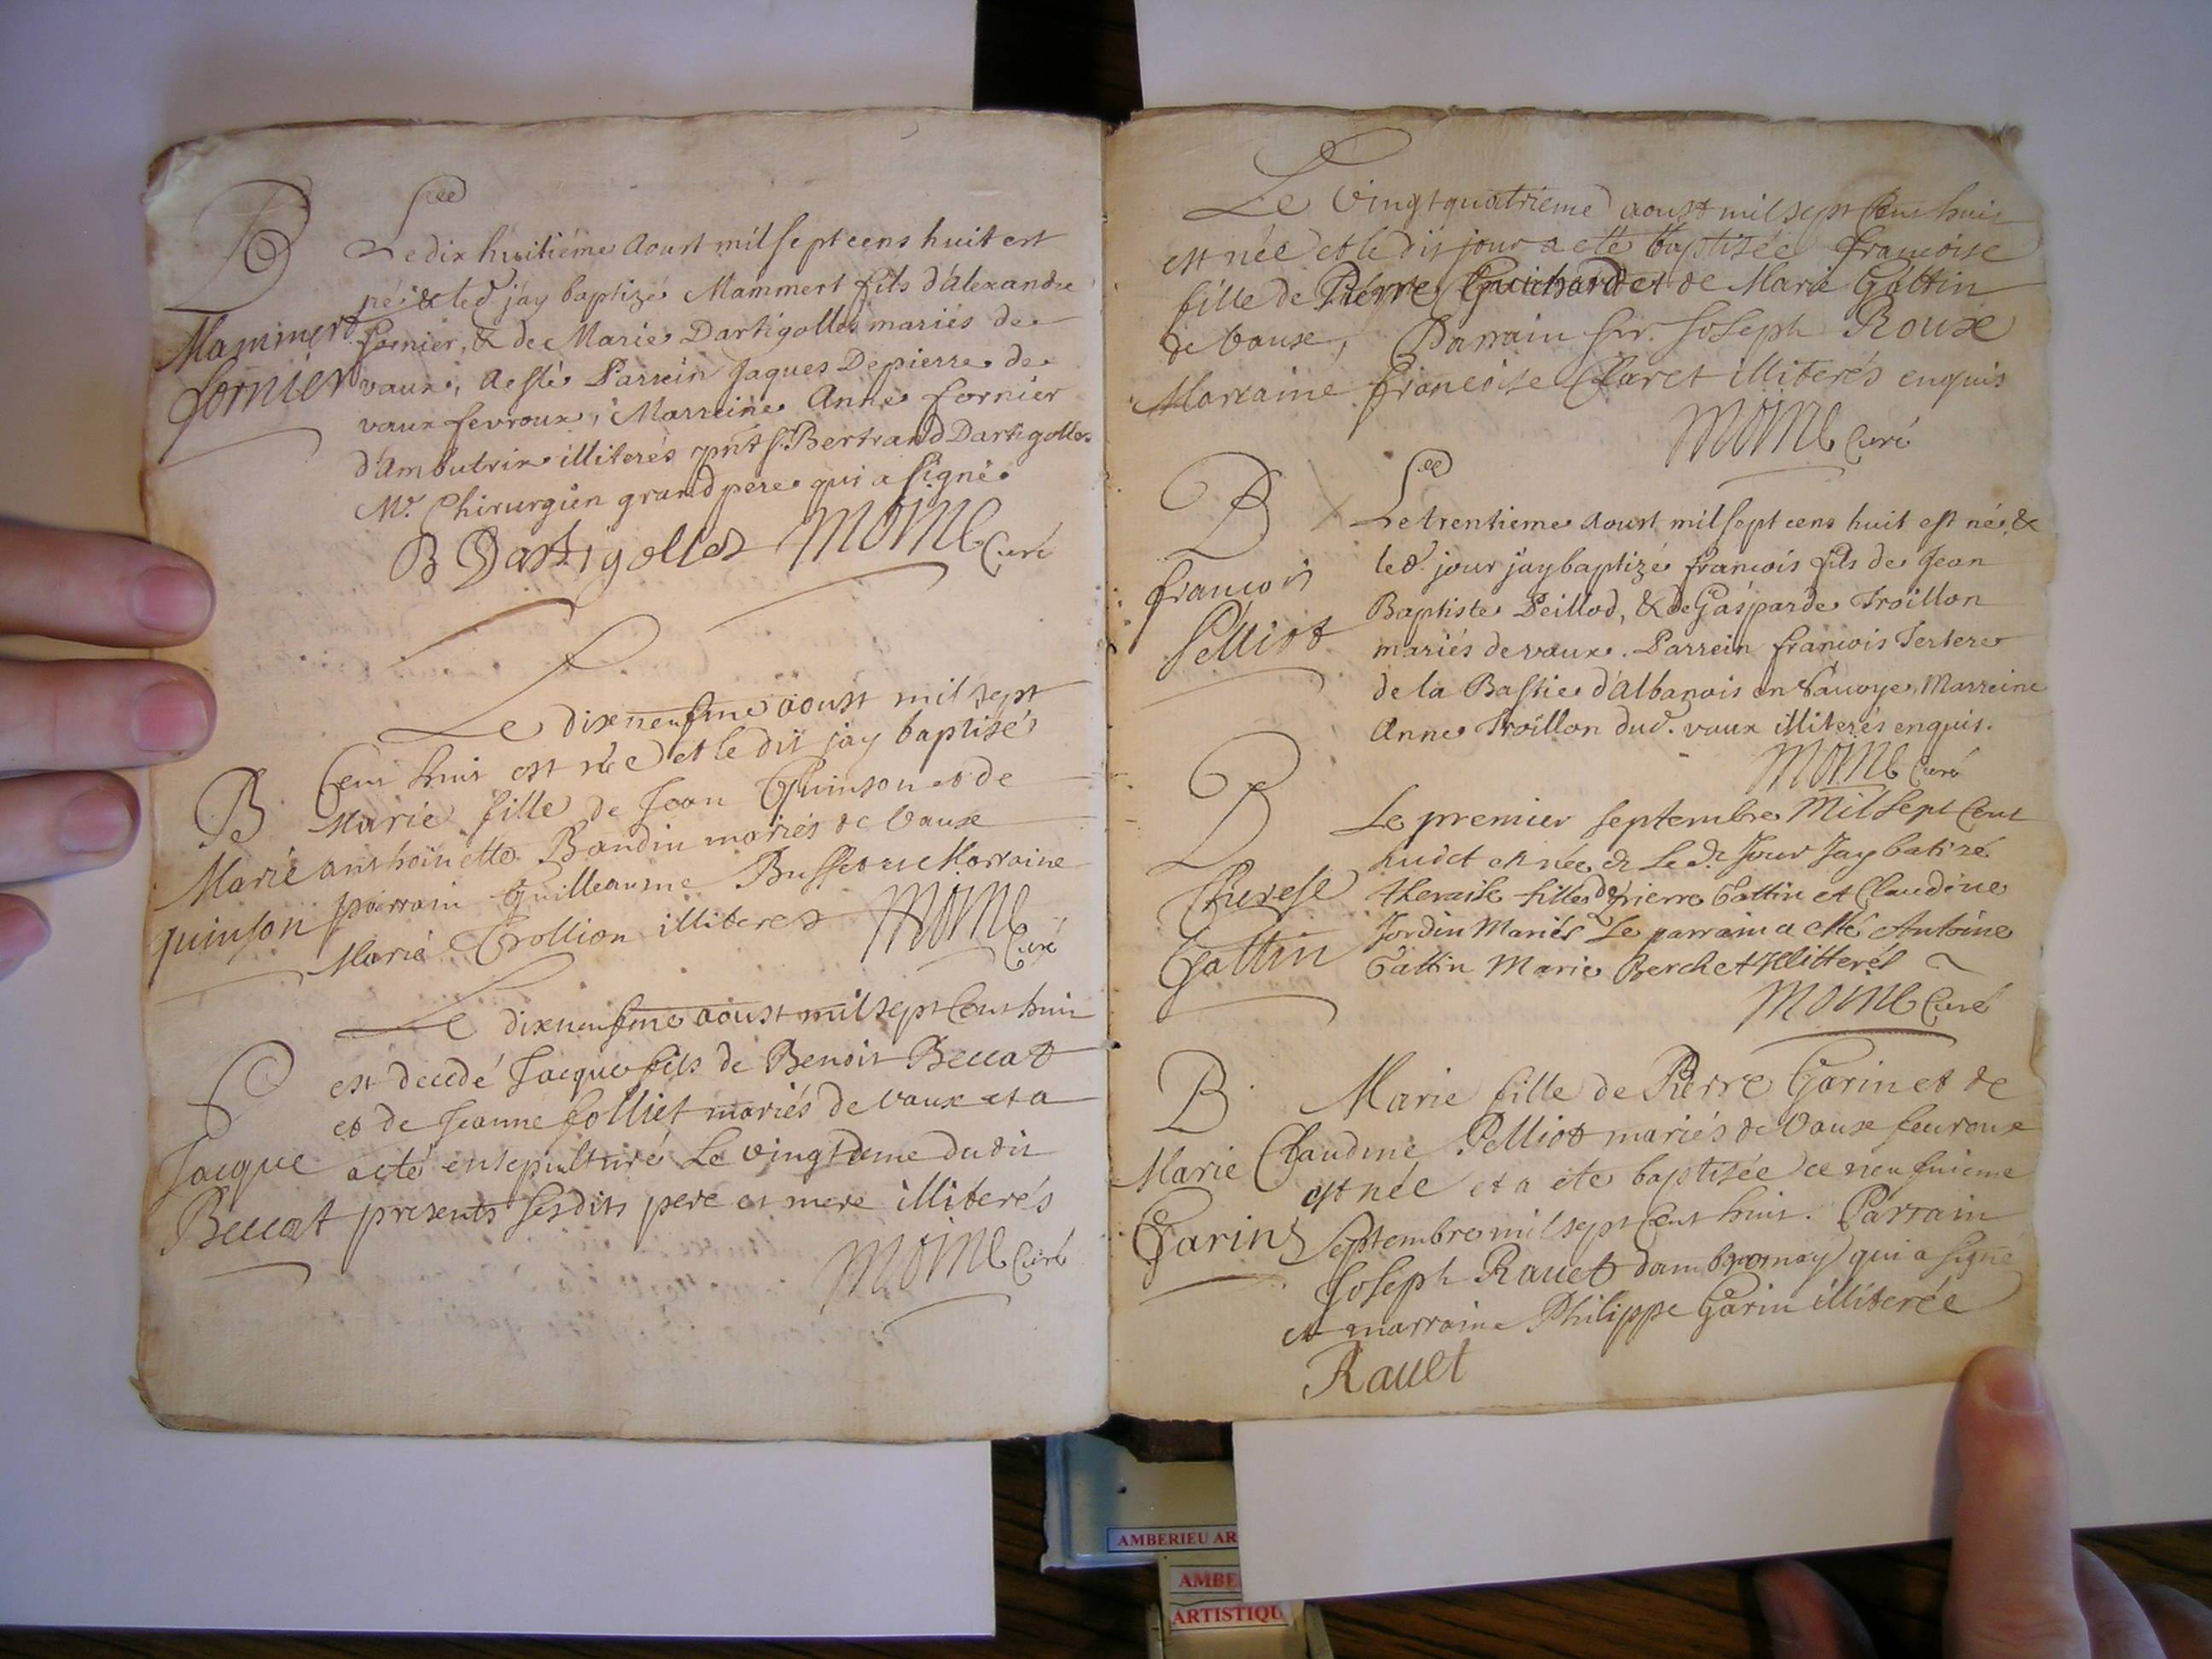 B
Mammert
fornier
Le dix huitième Aoust mil sept cens huit est
né, & led jay baptizé Mammert fils d'Alexandre
fornier, & de Marie Dartigolles mariés de
vaux, a esté Parrein Jaques Depierre de
vaux fevroux, Marreine Anne fornier
d'Ambutrix illiterés pnt Sr. Bertrand Dartigolles
Mr. Chirurgien grand pere qui a signé
B Dartigolles Moine Curé
B
Marie
quinson
Le dixneufme aoust mil sept
Cent huit est née et le dit jay baptisée
Marie fille de Jean Quinson et de
anthoinette Baudin mariés de Vaux
parrain Guilleaume Buffet et Marraine
Marie Trollion illiteres Moine
Curé
Jacque
Beccat
Le dixneufme aoust mil sept Cent huit
est decedé Jacque fils de Benoit Beccat
et de Jeanne folliet mariés de vaux et a
eté ensepulturé Le vingtieme du dit
presents sesdits pere et mere illiterés
Moine Curé
Le Vingt quatrieme aoust mil sept Cent huit
est née et le dit jour a eté baptisée francoise
fille de Pierre Guichard et de Marie Gottin
de Vaux, Parrain Joseph Roux
Marraine francoise Claret illiterés enquis
Moine Curé
B
francois
Pelliot
Le trentieme Aoust mil sept cens huit est né, &
led. jour jay baptizé francois fils de Jean
Baptiste Peillod, & de Gasparde Troillon
mariés de vaux. Parrein francois Tertere
de la Bastie d'Albanois en Savoye, Marreine
Anne Troillon dud. vaux illiterés enquis.
Moine Curé
B
Therese
Gottin
Le premier septembre Mil Sept Cent
huict et née & Le d. Jour Jay batizé
theraise fille de pierre Gattin et Claudine
Jordin Mariés Le parrain a esté Antoine
Gattin Marie Berchet Illitterés
Moine Curé
B
Marie
Garin
Marie fille de Pierre Garin et de
Claudine Pelliot mariés de Vaux feuroux
est née et a ete baptisée ce neufuieme
Septembre mil sept Cent huit. Parrain
Joseph Rauet dambournay qui a signé
et marraine Philippe Garin illiterée
Rauet
AMBERIEU AR
AMBE
ARTISTIQU